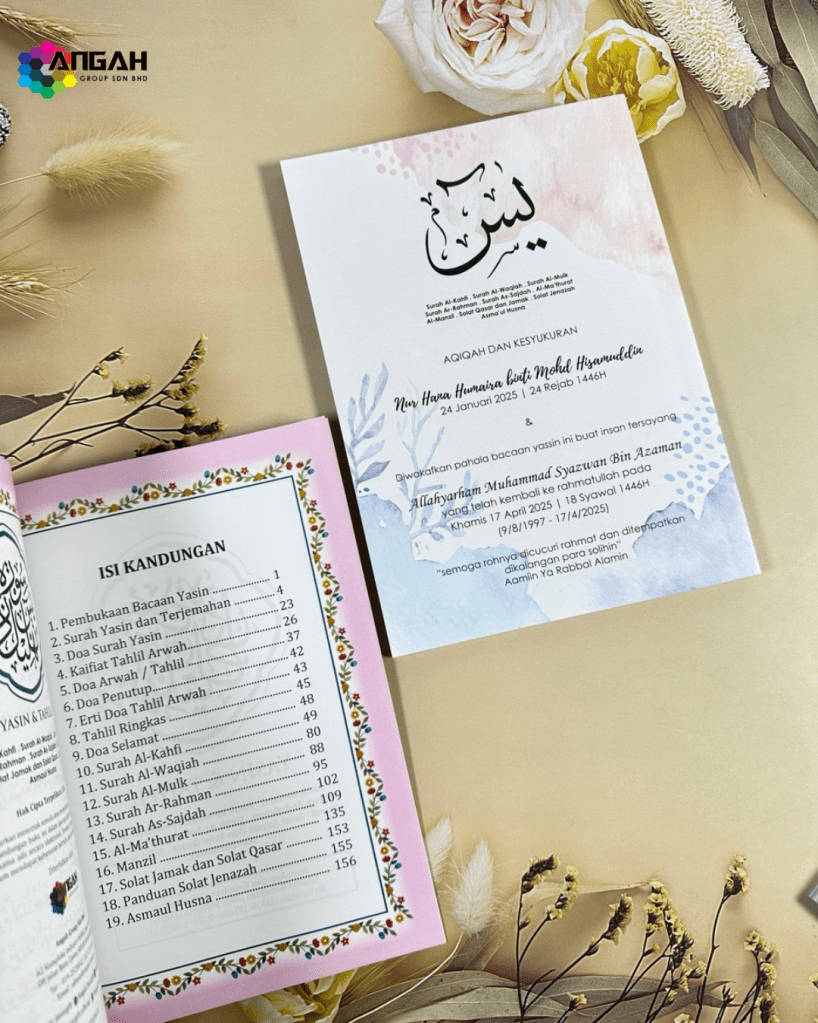 ANGAH
GROUP SDN BHD
يس
Surah Al-Kahfi . Surah Al-Waqiah . Surah Al-Mulk
Surah Ar-Rahman . Surah As-Sajdah . Al-Ma'thurat
Al-Manzil . Solat Qasar dan Jamak . Solat Jenazah
Asma'ul Husna
AQIQAH DAN KESYUKURAN
Nur Hana Humaira binti Mohd Hisamuddin
24 Januari 2025 | 24 Rejab 1446H
&
Diwakafkan pahala bacaan yassin ini buat insan tersayang
Allahyarham Muhammad Syazwan Bin Azaman
yang telah kembali ke rahmatullah pada
Khamis 17 April 2025 | 18 Syawal 1446H
(9/8/1997 - 17/4/2025)
"semoga rohnya dicucuri rahmat dan ditempatkan
dikalangan para solihin"
Aamiin Ya Rabbal Alamin
ISI KANDUNGAN
1. Pembukaan Bacaan Yasin ............... 1
2. Surah Yasin dan Terjemahan .......... 4
3. Doa Surah Yasin ............................ 23
4. Kaifiat Tahlil Arwah....................... 26
5. Doa Arwah / Tahlil ........................ 37
6. Doa Penutup................................. 42
7. Erti Doa Tahlil Arwah ................... 43
8. Tahlil Ringkas .............................. 45
9. Doa Selamat ................................. 48
10. Surah Al-Kahfi ............................ 49
11. Surah Al-Waqiah ......................... 80
12. Surah Al-Mulk ............................ 88
13. Surah Ar-Rahman ........................ 95
14. Surah As-Sajdah ......................... 102
15. Al-Ma'thurat .............................. 109
16. Manzil ....................................... 135
17. Solat Jamak dan Solat Qasar ........ 153
18. Panduan Solat Jenazah ................ 155
19. Asmaul Husna ............................ 156
YASIN &
Asmaul Husna
Hak Cipta
ANGAH